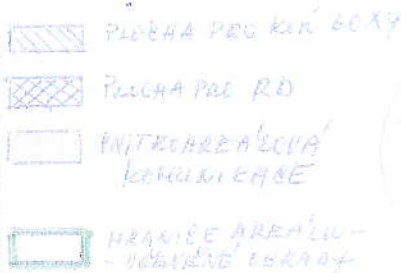 PLOCHA PRO KON BOXY
PLOCHA PRO RD
VNITROAREÁLOVÁ
KOMUNIKACE
HRANICE AREÁLU -
- OHRADY